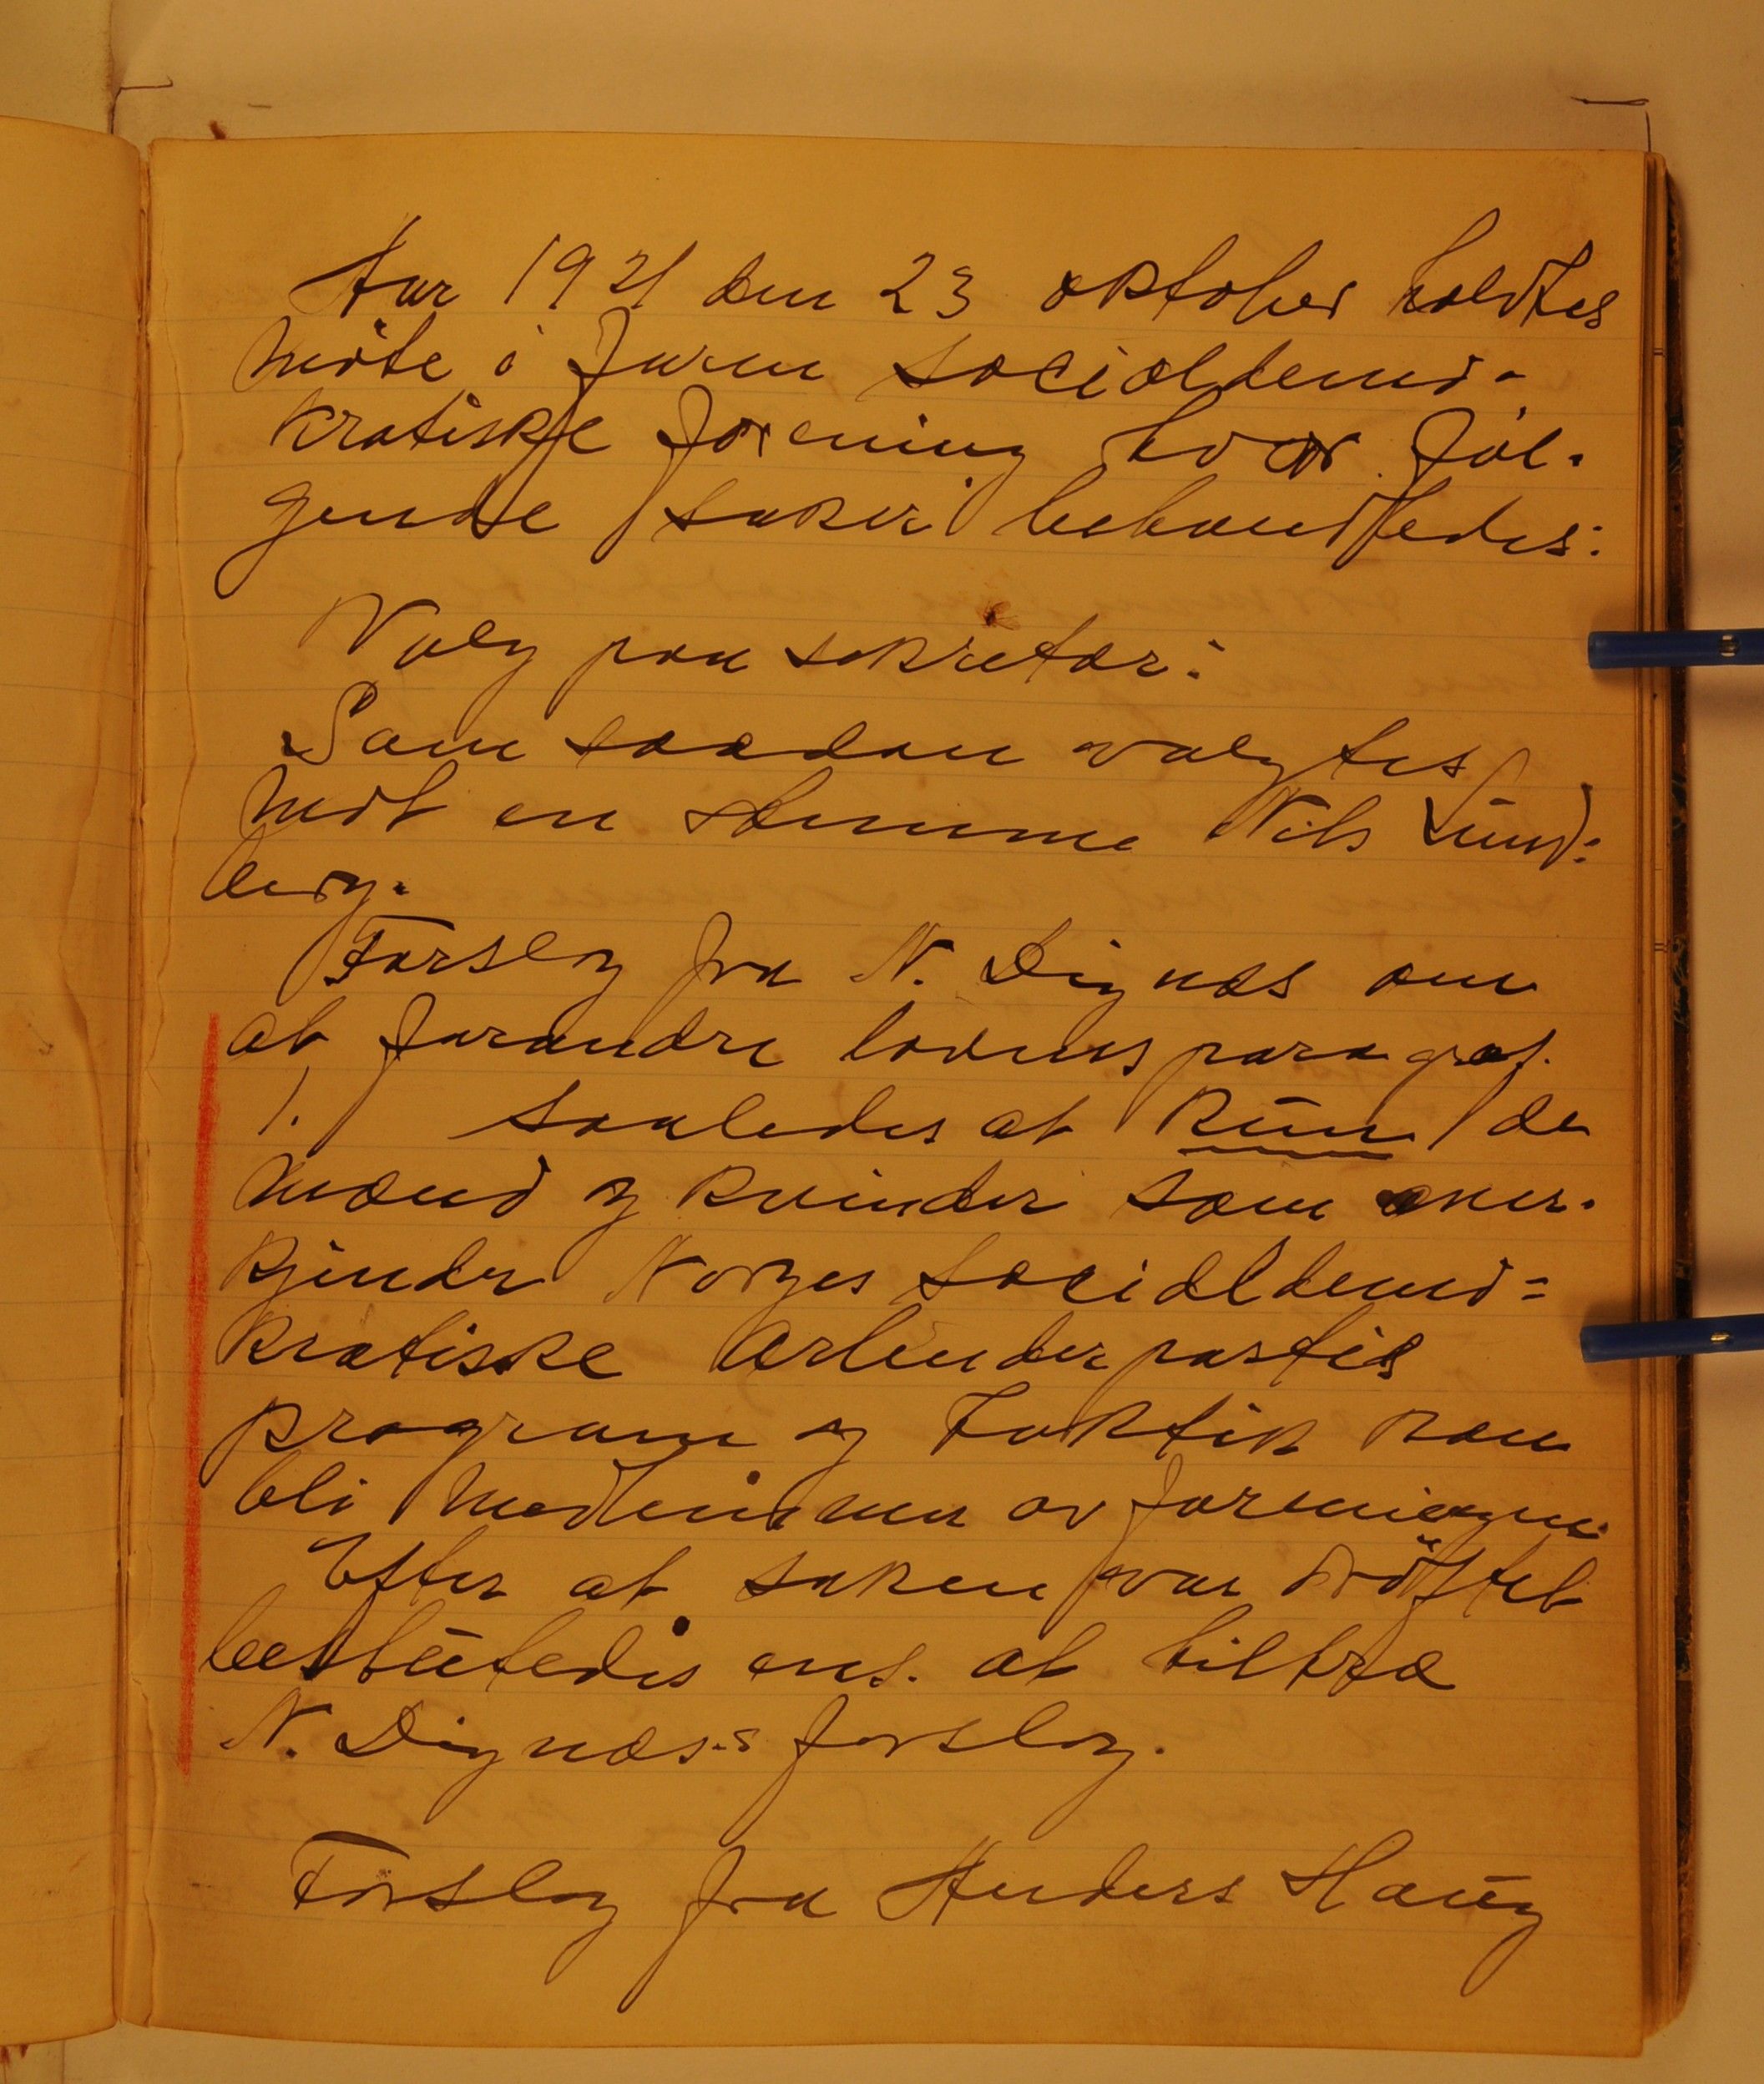 Aar 1921 den 23 oktober holdtes
möte i Furu socialdemo-
kratiske forening hvor föl-
gende saker behandledes:
Valg paa sekretær:
Som saadan valgtes
mot en stemme Nils Lund-
berg.
Forslag fra N. Dignæs om
at forandre lovens paragraf.
1. saaledes at kun de
mænd og kvinder som aner-
kjender Norges socialdemo=
kratiske Arbeiderpartis
program og Taktik kan
bli medlemmer av foreningen.
Efter at saken var dröftet
besluttedes ens. at tiltræ
N. Dignæs-s forslag.
Forslag fra Anders Haug